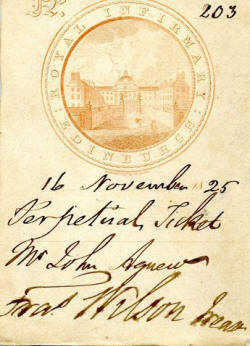 No. 203
ROYAL INFIRMARY
EDINBURGH
16 November 1825
Perpetual Ticket
Mr John Agnew
Fras Wilson Treasr